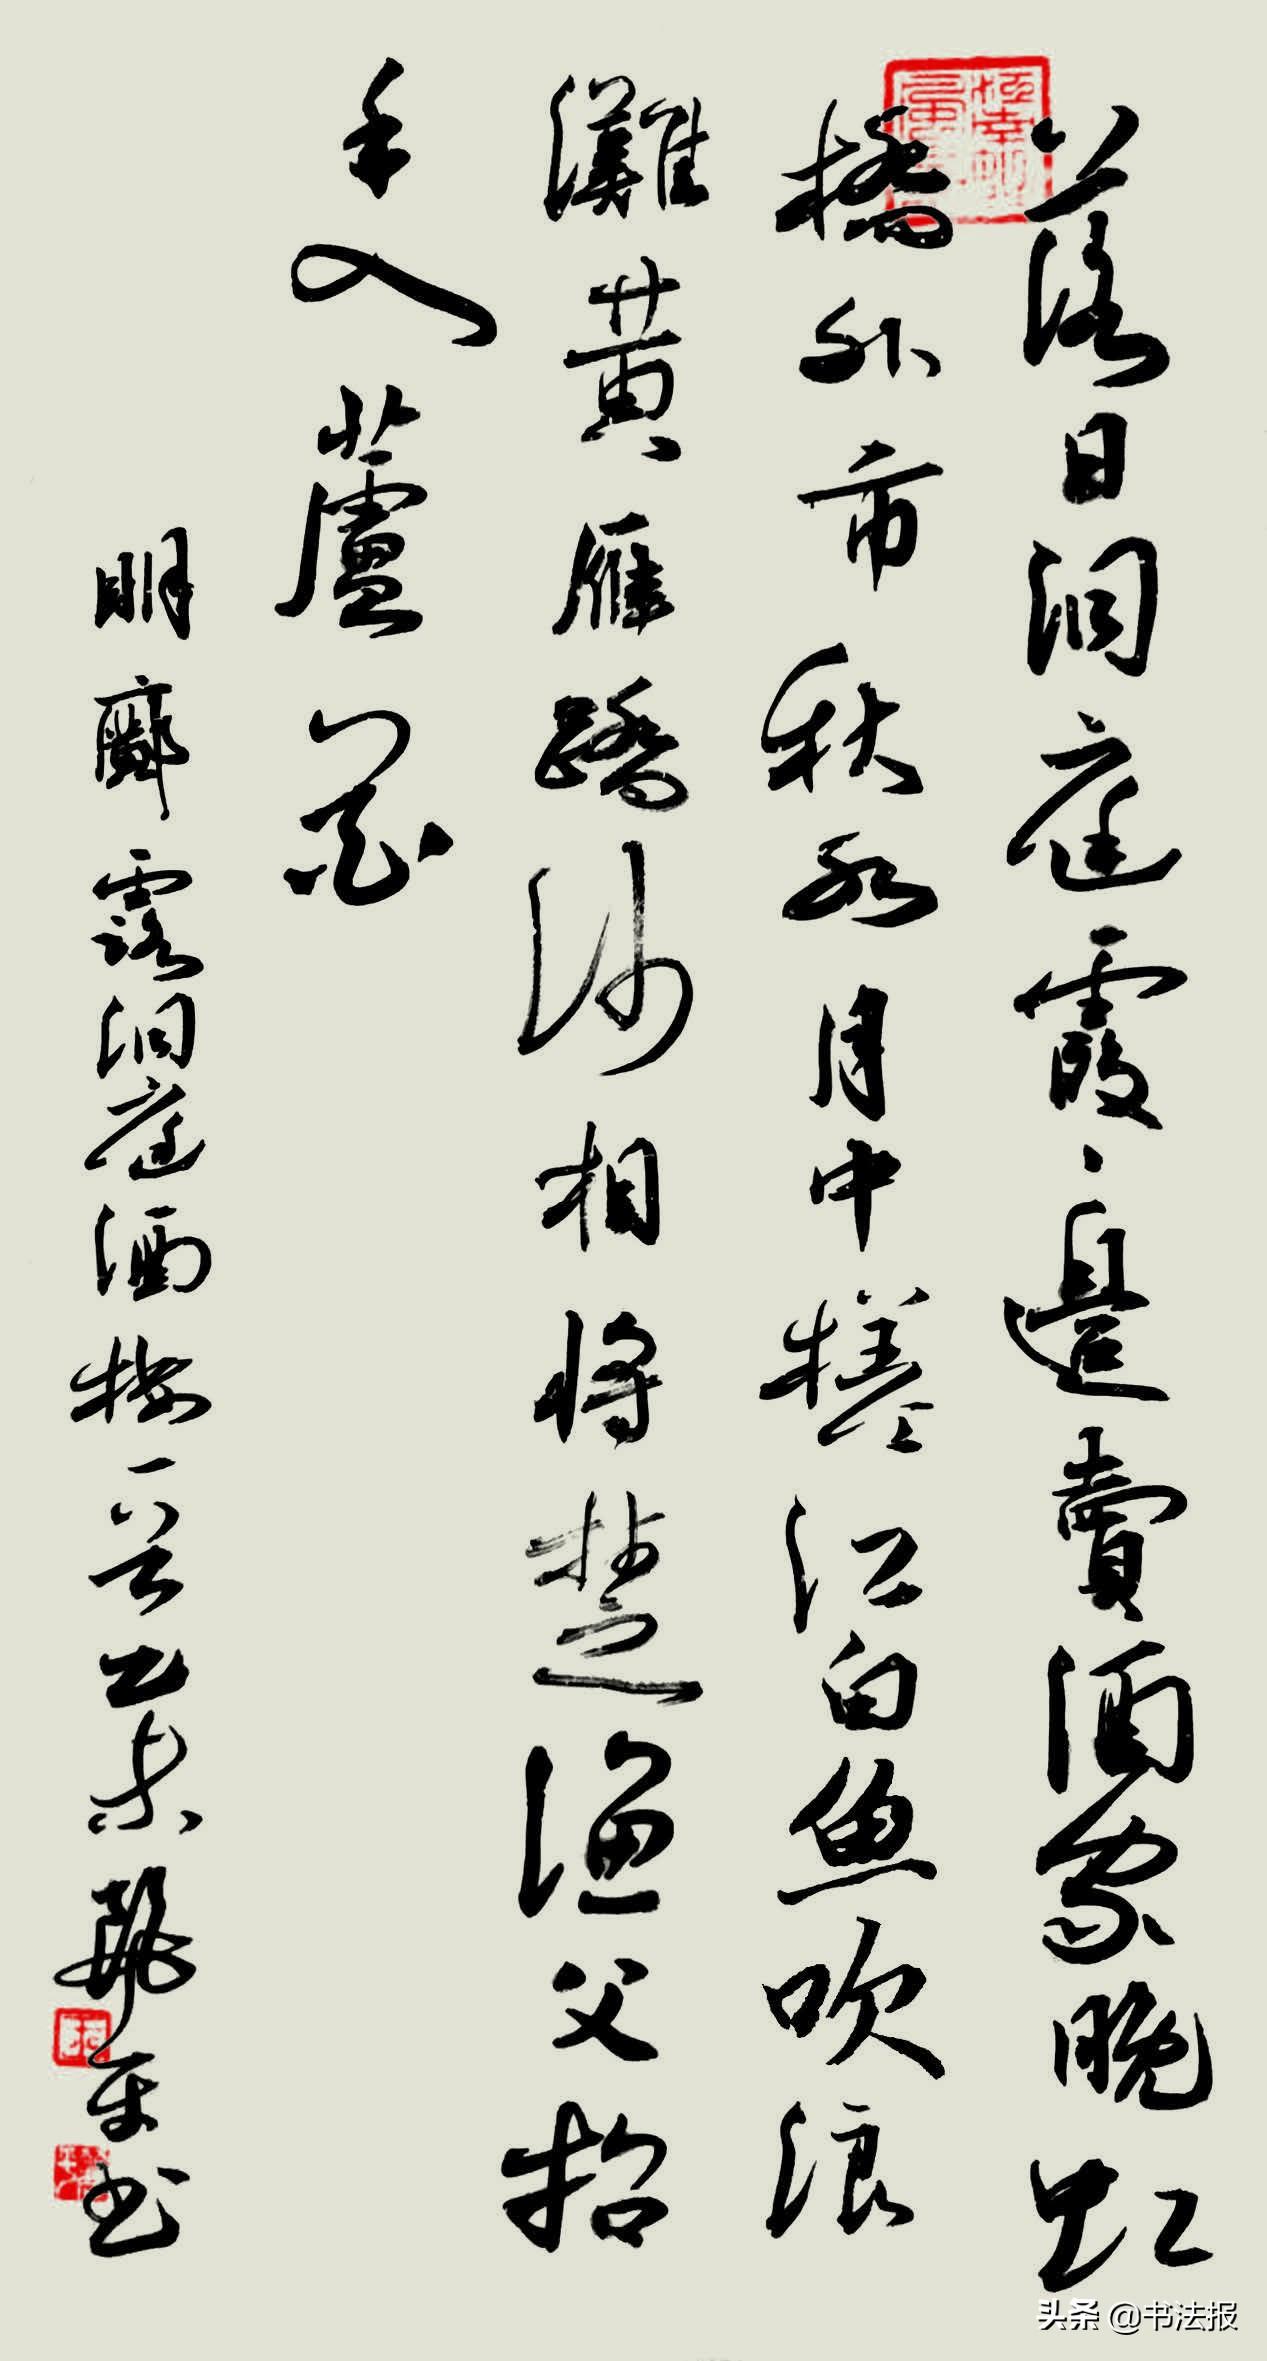 落日洞庭霞、邊賣酒家晚虹
橋外市秋水月中槎江白魚吹浪
灘黃雁踏沙相將楚漁父招
手入蘆花
明鄺露洞庭酒樓一首 书
头条 @书法报